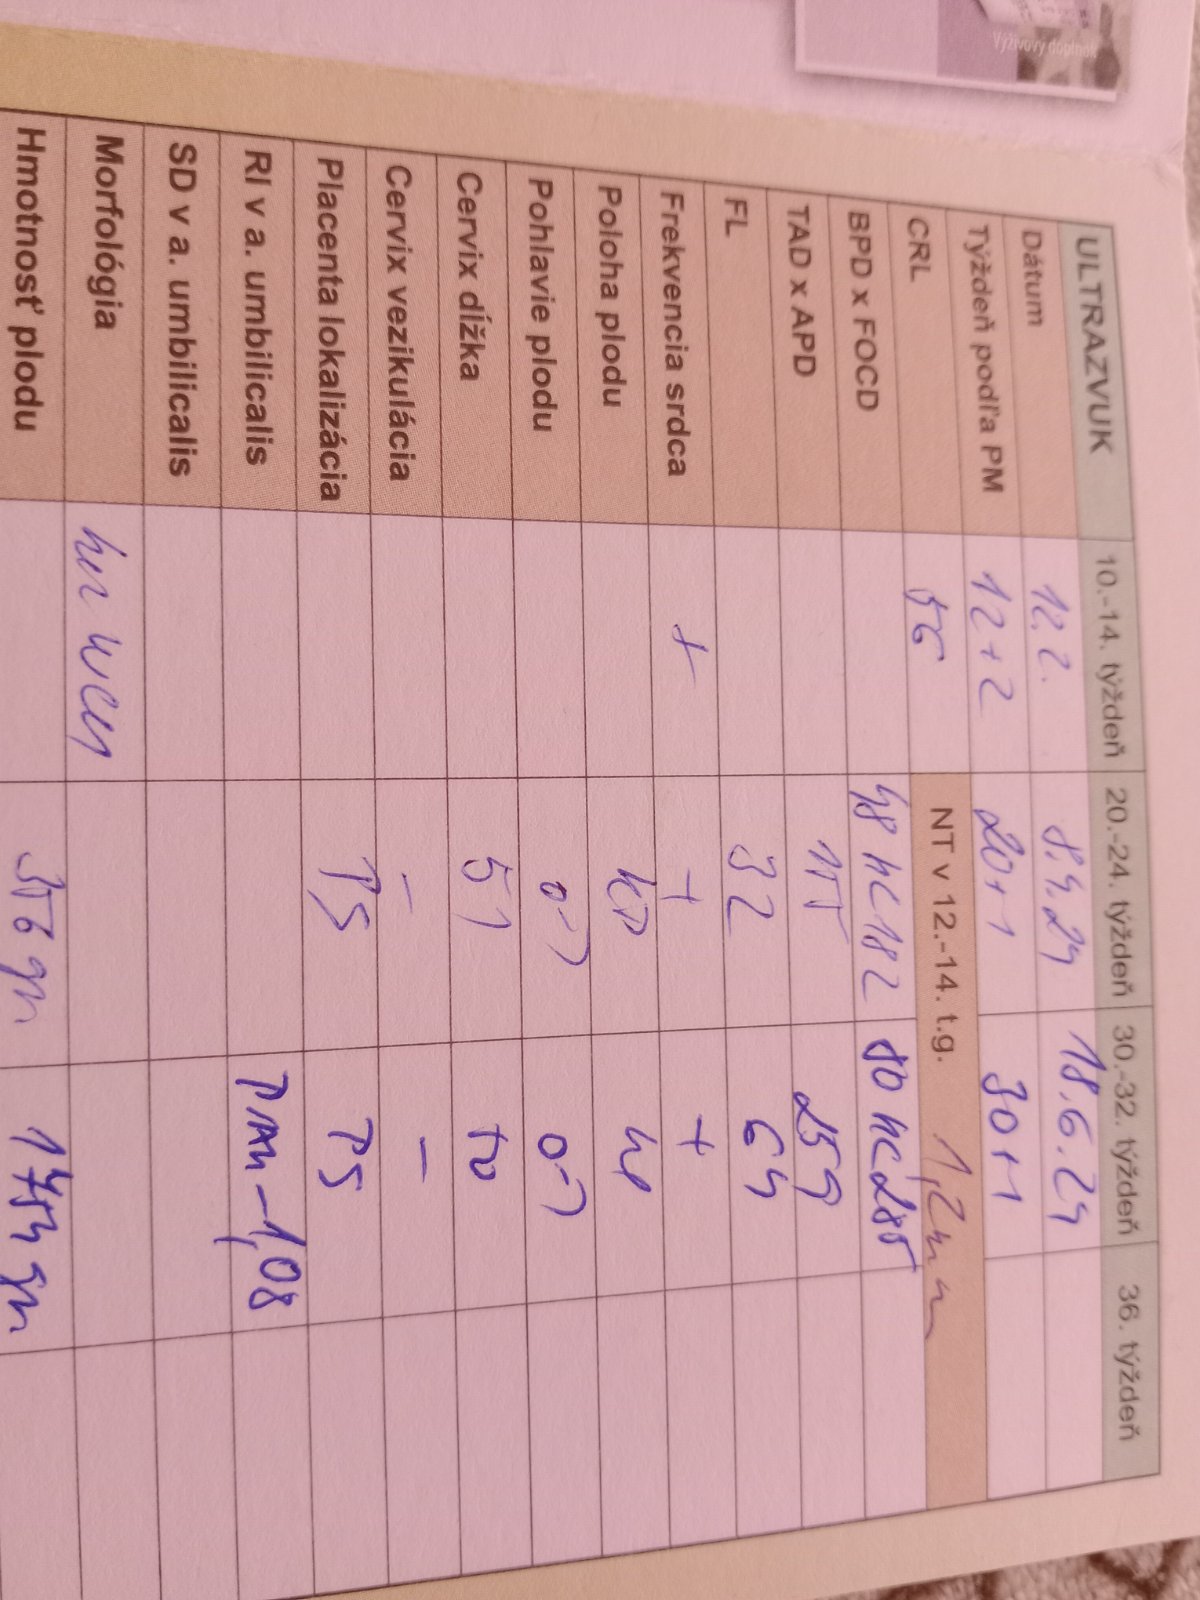 Výživový doplnok
ULTRAZVUK 10.-14. týždeň 20.-24. týždeň 30.-32. týždeň 36. týždeň
Dátum 12.2. 8.4.24 18.6.24
Týždeň podľa PM 12+2 20+1 30+1
CRL 56 NT v 12.-14. t.g. 1,2mm
BPD x FOCD 48 HC 182 80 HC 285
TAD x APD 155 259
FL 32 64
Frekvencia srdca + + +
Poloha plodu KP
Pohlavie plodu
Cervix dĺžka 51 40
Cervix vezikulácia – –
Placenta lokalizácia PS PS
RI v a. umbilicalis – 1,08
SD v a. umbilicalis
Morfológia
Hmotnosť plodu 356 gr 1754 gr